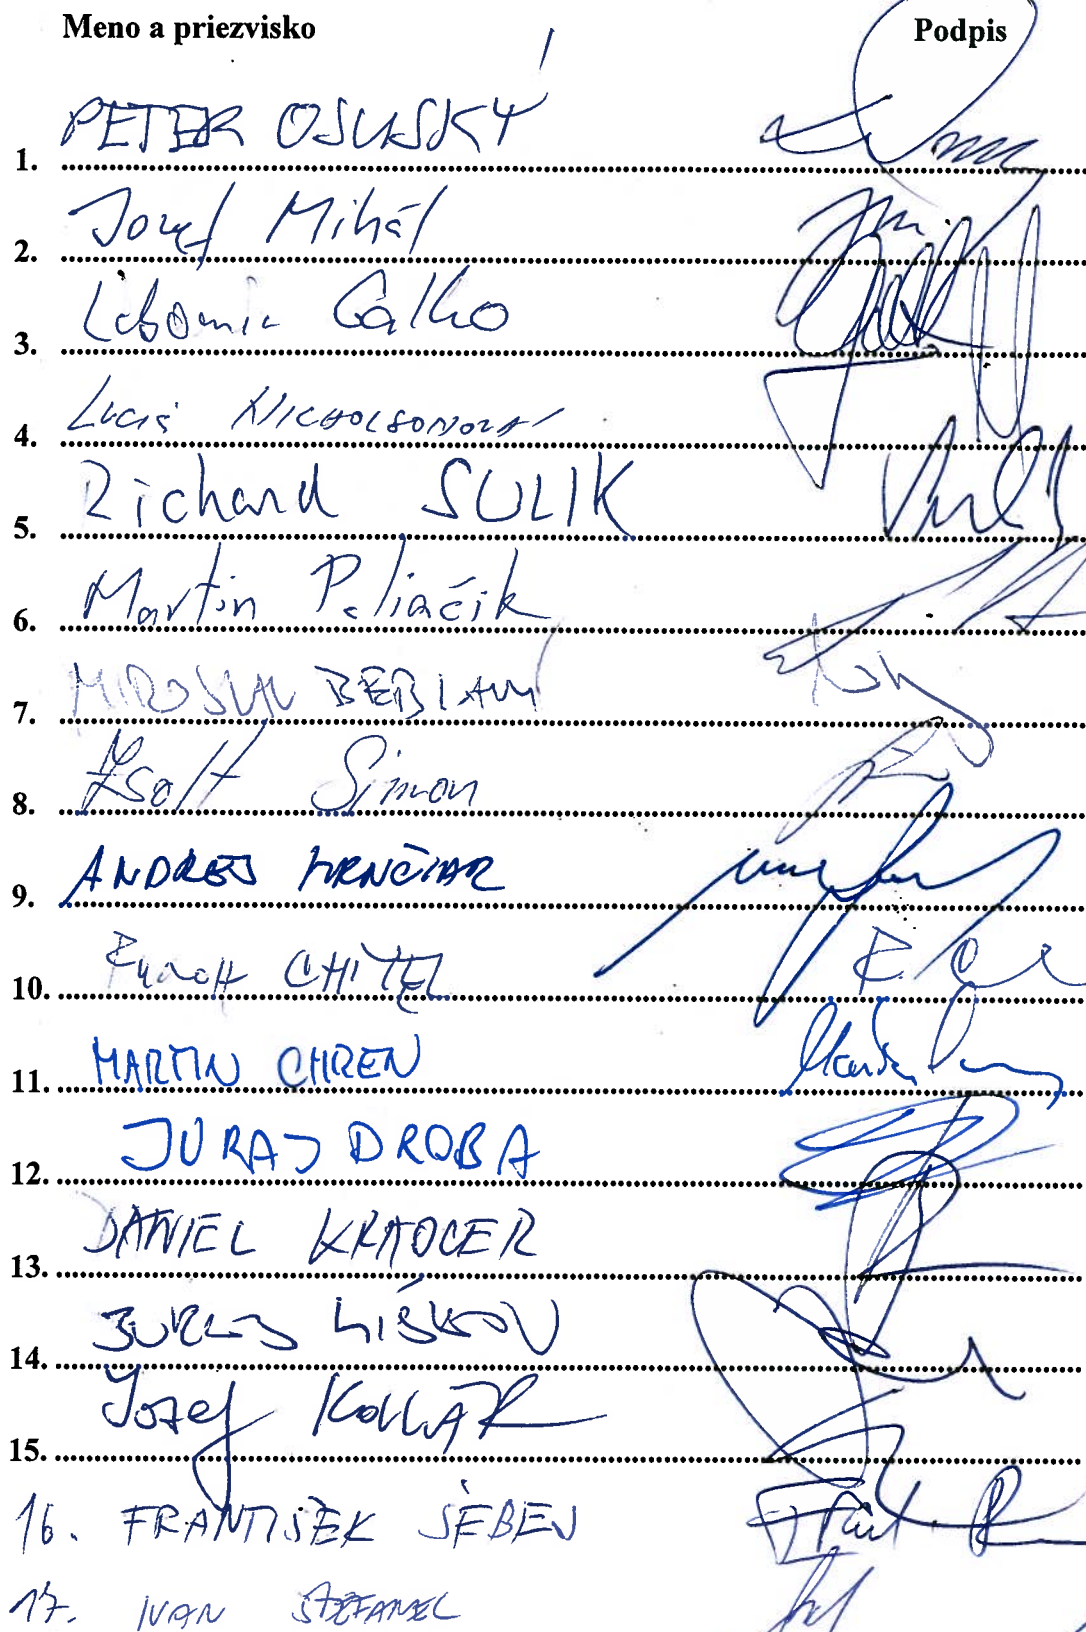 Meno a priezvisko Podpis
1. PETER OSUSKÝ
2. Jozef Mihál
3. Ľubomír Galko
4. Lucia NICHOLSONOVÁ
5. Richard SULIK
6. Martin Poliačik
7. MIROSLAV BEBLAVÝ
8. Zsolt Simon
9. ANDREJ HRNČIAR
10. CHMEL
11. MARTIN CHREN
12. JURAJ DROBA
13. DANIEL KRAJCER
14. JURAJ MIŠKOV
15. Jozef KOLLÁR
16. FRANTIŠEK ŠEBEJ
17. IVAN ŠTEFANEC